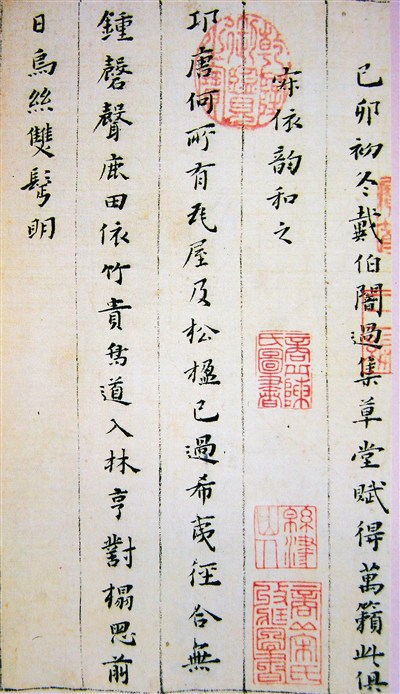 己卯初冬戴伯闇過集草堂賦得萬籟此俱
寂依韵和之
邛唐何所有瓦屋及松楹已過希夷徑合無
鍾磬聲鹿田依竹貴鳥道入林亨對榻思前
日烏絲雙髩明